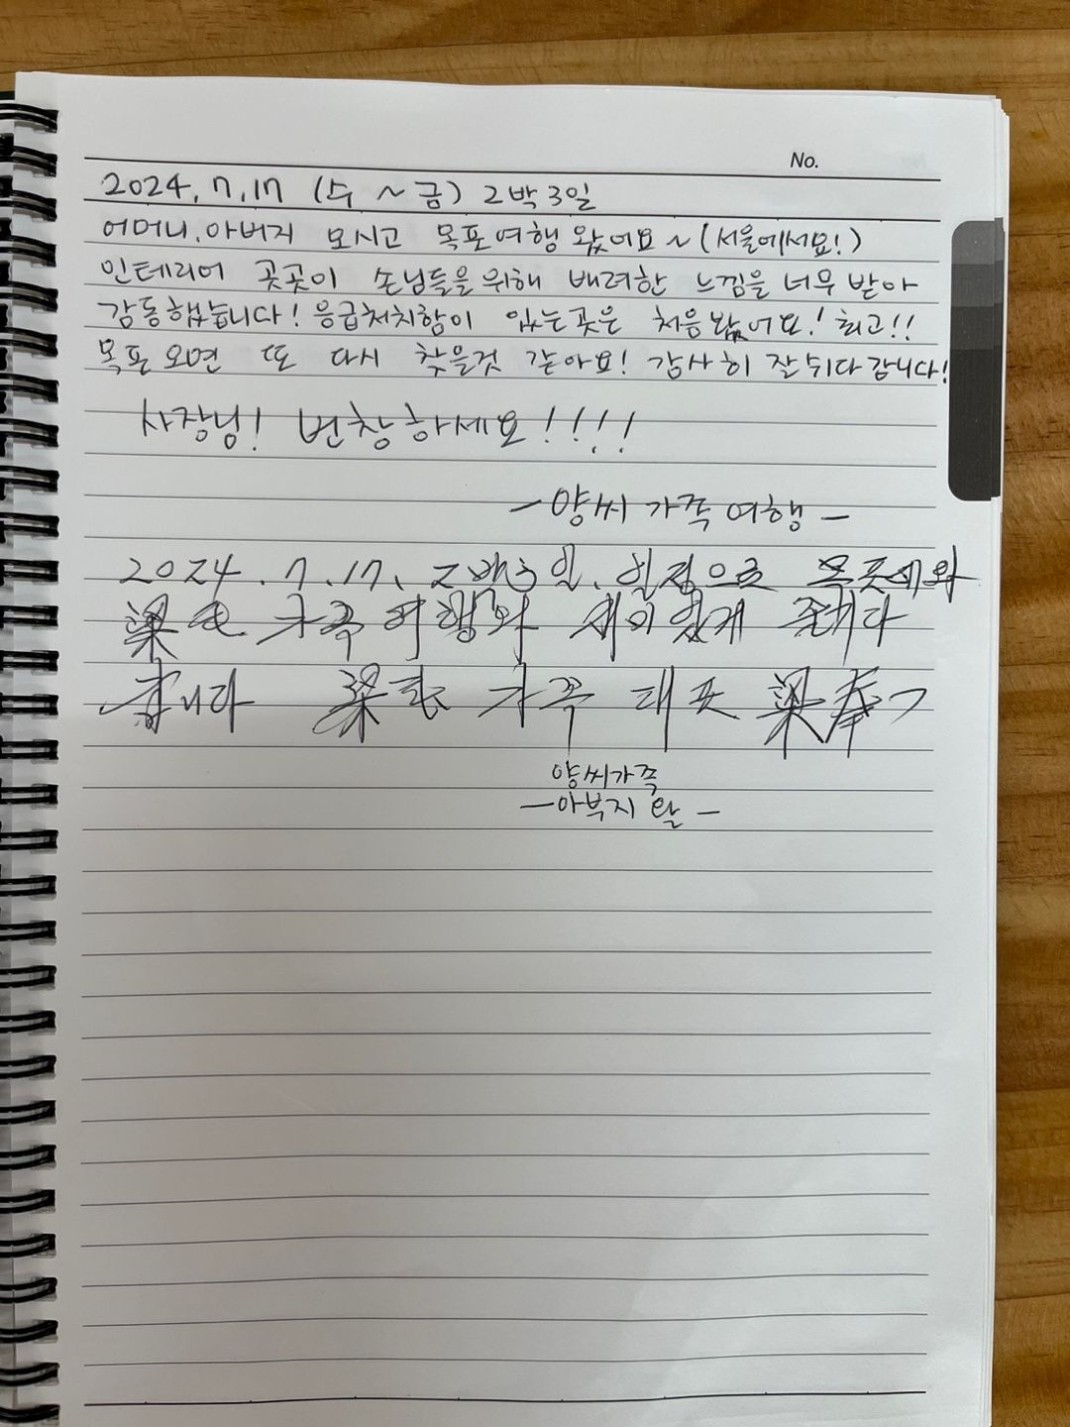 No.
2024. 7. 17 (수 ~ 금) 2박 3일
어머니.아버지 모시고 목포여행 왔어요~ (서울에서요!)
인테리어 곳곳이 손님들을 위해 배려한 느낌을 너무 받아
감동했습니다! 응급처치함이 있는곳은 처음봤어요! 최고!!
목포 오면 또 다시 찾을것 같아요! 감사히 잘 쉬다 갑니다!
사장님! 번창하세요!!!!
- 양씨 가족 여행 -
2024. 7. 17. 2박3일. 일정으로
梁氏 가족 여행와 재미있게
갑니다 梁氏 가족 대표 梁
양씨가족
- 아부지 왈 -